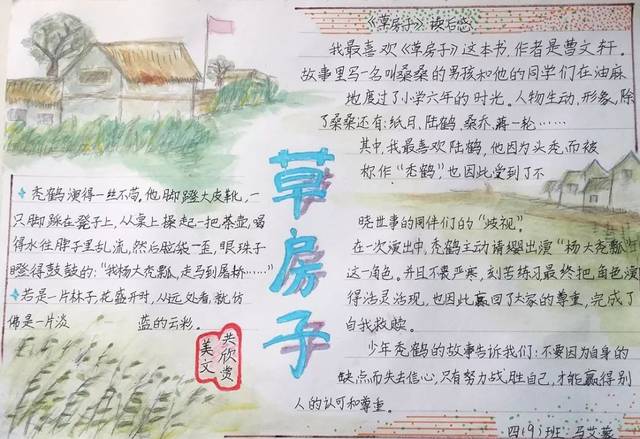 《草房子》读后感
我最喜欢《草房子》这本书,作者是曹文轩。
故事里写一名叫桑桑的男孩和他的同学们在油麻
地度过了小学六年的时光。人物生动,形象,除
了桑桑还有:纸月、陆鹤、桑乔、蒋一轮……
其中,我最喜欢陆鹤,他因为头秃而被
称作“秃鹤”,也因此受到了不
晓世事的同伴们的“歧视”。
在一次演出中,秃鹤主动请缨出演“杨大秃瓢”
这一角色。并且不畏严寒,刻苦练习最终把角色演
得活灵活现,也因此赢回了大家的尊重,完成了
自我救赎。
少年秃鹤的故事告诉我们:不要因为自身的
缺点而失去信心,只有努力战胜自己,才能赢得别
人的认可和尊重。
四(9)班 马艾
草房子
秃鹤演得一丝不苟,他脚蹬大皮靴,一
只脚踩在凳子上,从桌上操起一把茶壶,喝
得水往脖子里乱流,然后脸袋一歪,眼珠子
瞪得鼓鼓的:“我杨大秃瓢,走马到屠桥……”
若是一片林子,花盛开时,从远处看,就仿
佛是一片淡 蓝的云彩。
美文
共欣赏